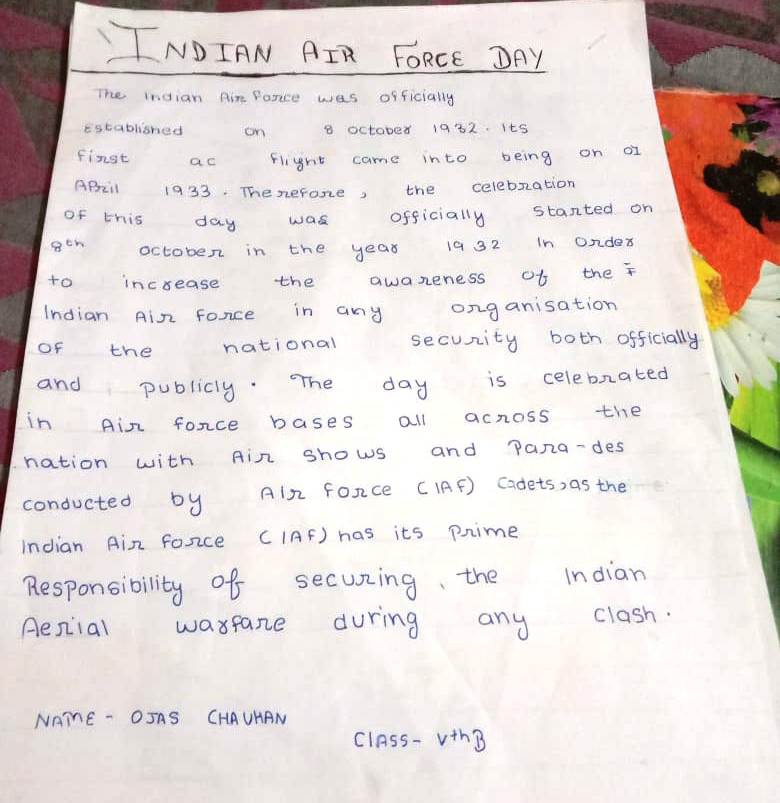 INDIAN AIR FORCE DAY
The Indian Air Force was officially
Established on 8 October 1932. Its
first ac flight came into being on 01
April 1933. Therefore, the celebration
of this day was officially started on
8th october in the year 1932 In Order
to increase the awareness of the F
Indian Air Force in any organisation
of the national security both officially
and publicly. The day is celebrated
in Air force bases all across the
nation with Air shows and Para-des
conducted by AIr Force (IAF) Cadets, as the
Indian Air Force (IAF) has its Prime
Responsibility of securing, the Indian
Aerial warfare during any clash.
NAME - OJAS CHAUHAN
Class - vth B